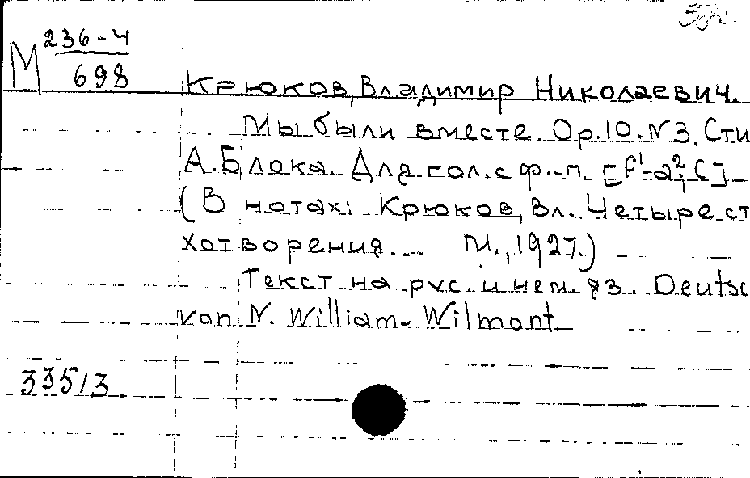 М 236-4
698
Крюков, Владимир Николаевич.
Мы были вместе. Ор.10. N3. Сти
А. Блока. Для гол. с ф.-п. [f¹-a²,C]
(В нотах: Крюков, Вл. Четыре ст
хотворения... М., 1927.)
Текст на рус. и нем. яз. Deutsc
von N. William-Wilmont
33513